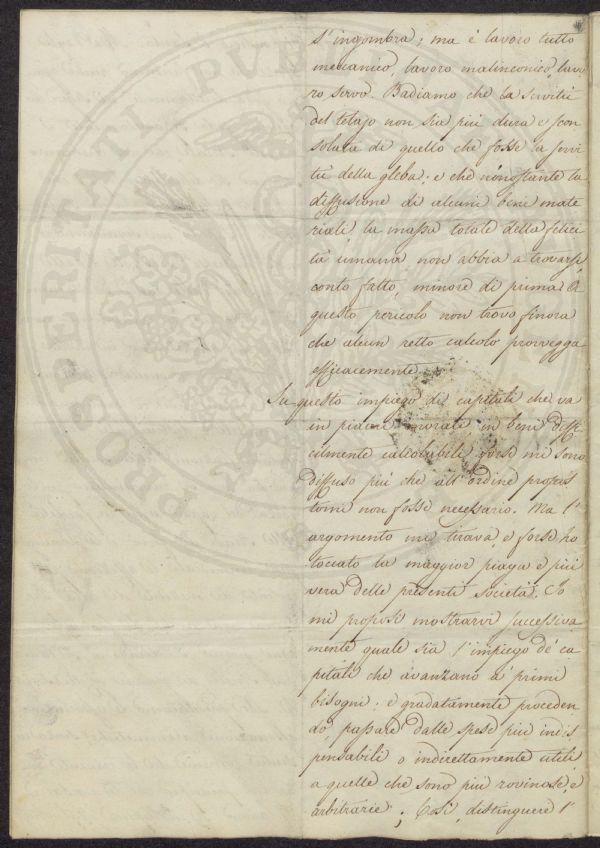 s'ingombra; ma è lavoro tutto
meccanico, lavoro malinconico, lavo
ro servo. Badiamo che la servitù
del telajo non sia più dura e scon
solata di quello che fosse la servi
tù della gleba; e che nonostante la
diffusione di alcuni beni mate
riali la massa totale della felici
tà umana non abbia a trovarsi,
conto fatto, minore di prima. A
questo pericolo non trovo finora
che alcun retto calcolo provvegga
efficacemente.
Su questo impiego di capitali che va
in piacere morale in beni diffi
cilmente calcolabili forse mi sono
diffuso più che all'ordine propos
tomi non fosse necessario. Ma l'
argomento mi tirava, e forse ho
toccato la maggior piaga e più
vera delle presenti società. Io
mi proposi mostrarvi successiva
mente quale sia l'impiego de' ca
pitali che avanzano a' primi
bisogni: e gradatamente proceden
do, passare dalle spese più indis
pensabili o indirettamente utili
a quelle che sono più rovinose, e
arbitrarie; Così, distinguere l'
PROSPERITATI PUB